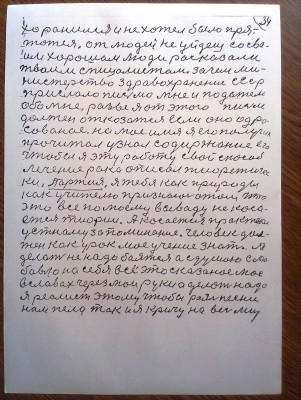 34
хоранился и не хотел было пря-
тотся. от людей не уйдеш со сво-
им хорошам люди расказали
твоим специалистам зачем ми-
нистерство здравохранение СССР
прислало письмо мне и подател
обо мне, разве я от этого писни
должен отказатся если оно адре-
сованое, на мое имя я его получил
прочитал узнал содержание его
чтобы я эту работу свой способ
легение рака описал теоретичес
ки, Партия, я тебя как природы
как учителю признаю отом, что
это все помоему всегаду не кос-
ется теории. А косается практики
устному запоминание. человек дол-
жен как урок мое учение знать. А
делать не надо боятся а с душою со лю-
бавю на себя всё это сказаное мое
в славах через мои руки а делат надо
я реалист этому чтобы раль песни
нам пела так и я кричу на весь му